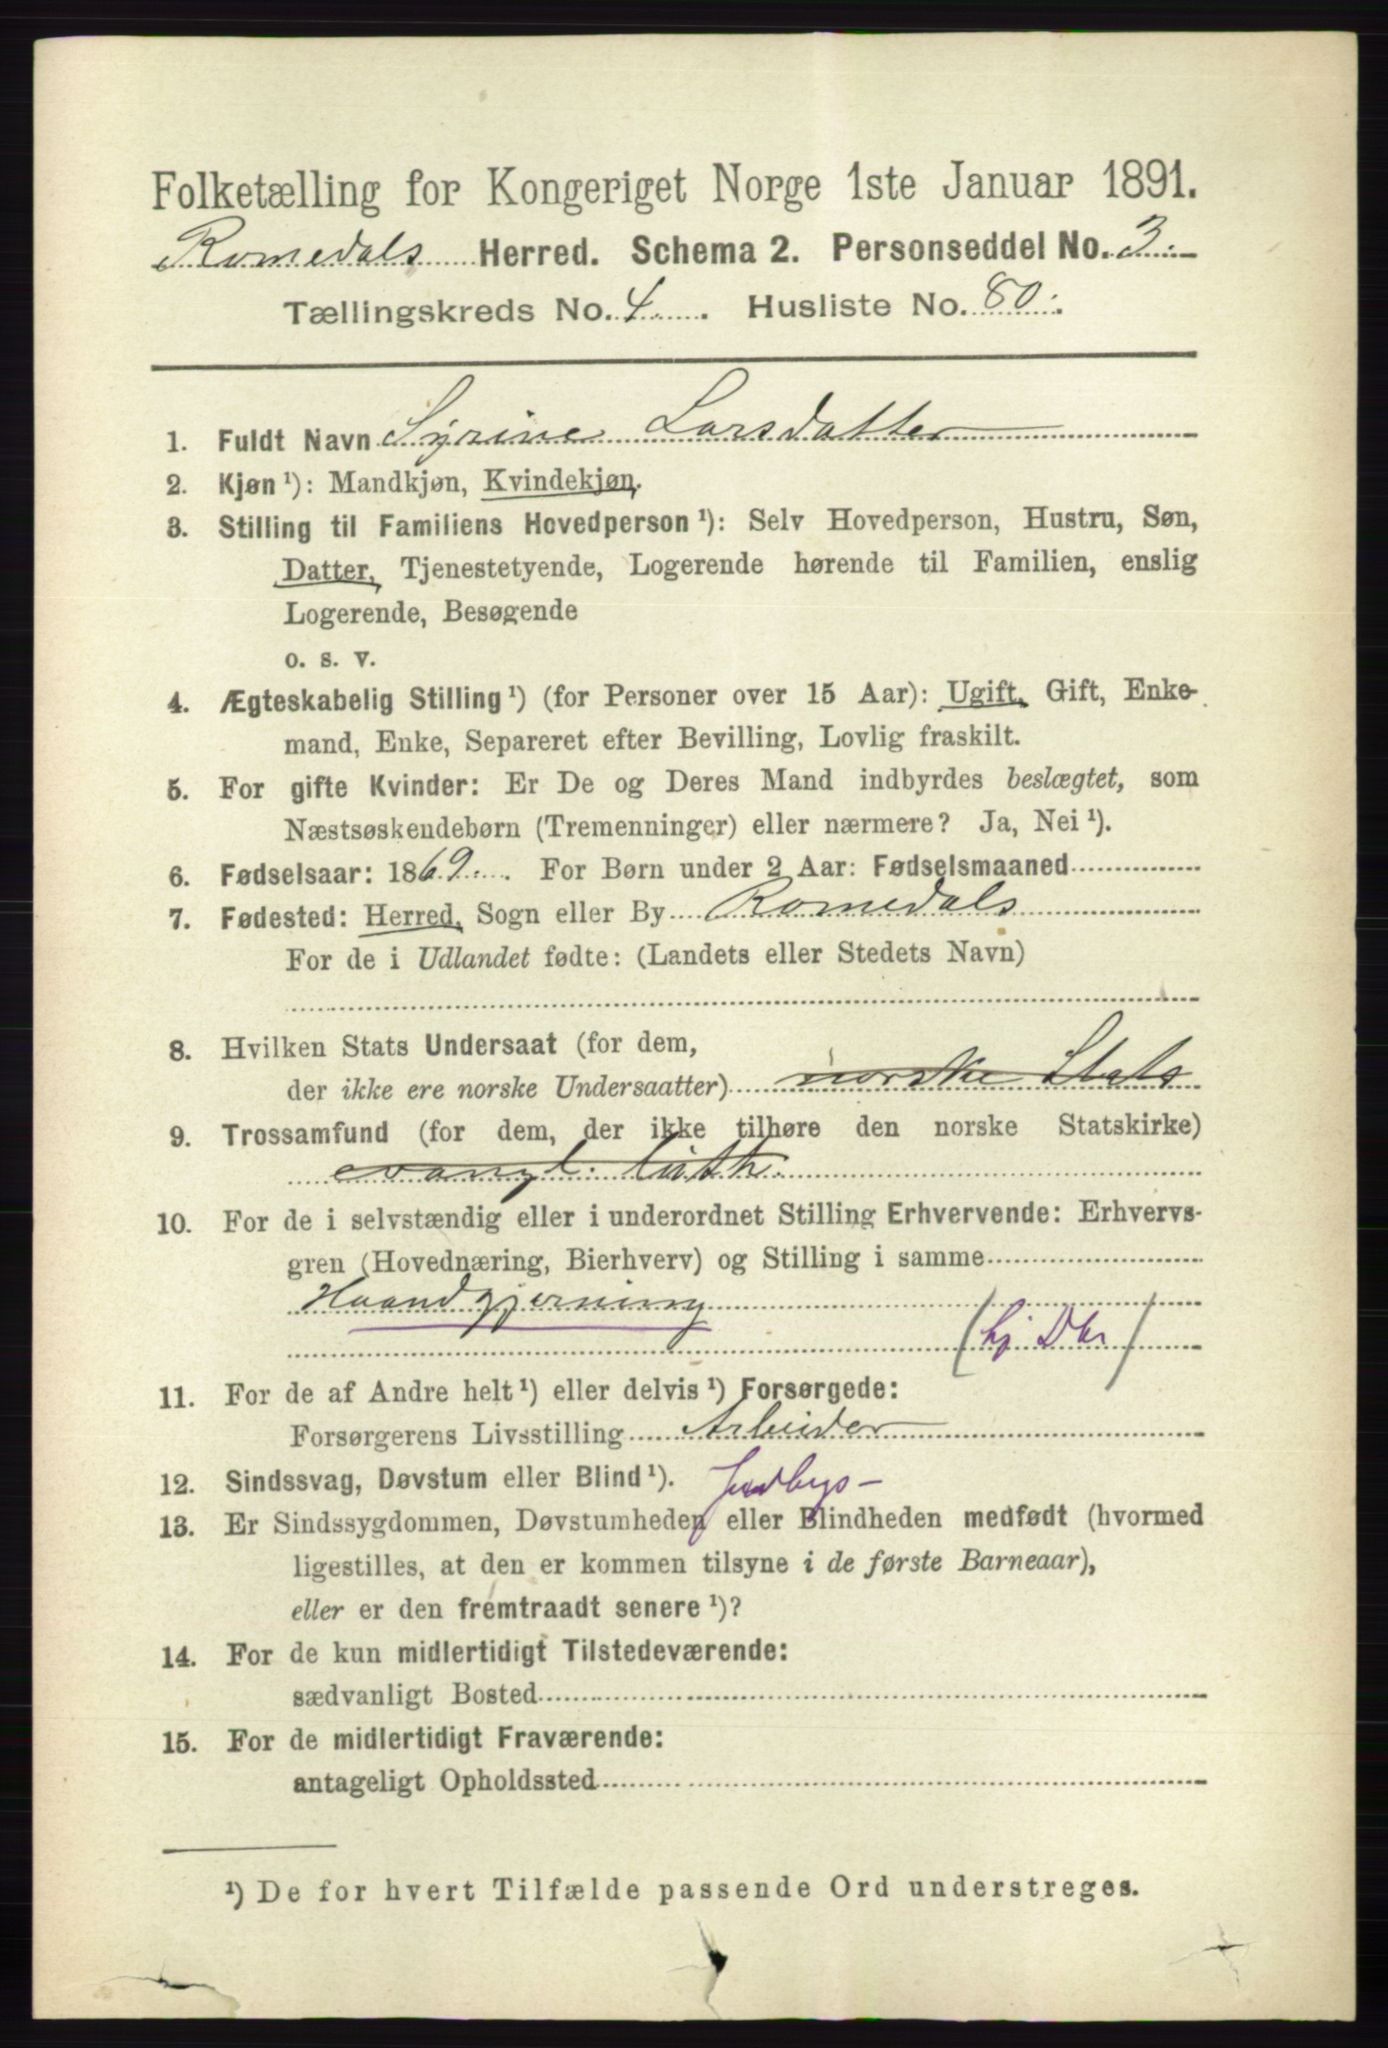 Folketælling for Kongeriget Norge 1ste Januar 1891.
Romedals Herred. Schema 2. Personseddel No. 3.
Tællingskreds No. 4. Husliste No. 80.
1. Fuldt Navn Syrine Larsdatter
2. Kjøn ¹): Mandkjøn, Kvindekjøn.
3. Stilling til Familiens Hovedperson ¹): Selv Hovedperson, Hustru, Søn,
Datter, Tjenestetyende, Logerende hørende til Familien, enslig
Logerende, Besøgende
o. s. v.
4. Ægteskabelig Stilling ¹) (for Personer over 15 Aar): Ugift, Gift, Enke-
mand, Enke, Separeret efter Bevilling, Lovlig fraskilt.
5. For gifte Kvinder: Er De og Deres Mand indbyrdes beslægtet, som
Næstsøskendebørn (Tremenninger) eller nærmere? Ja, Nei ¹).
6. Fødselsaar: 1869. For Børn under 2 Aar: Fødselsmaaned
7. Fødested: Herred, Sogn eller By Romedals
For de i Udlandet fødte: (Landets eller Stedets Navn)
8. Hvilken Stats Undersaat (for dem,
der ikke ere norske Undersaatter) norske Stats
9. Trossamfund (for dem, der ikke tilhøre den norske Statskirke)
evangl. luth.
10. For de i selvstændig eller i underordnet Stilling Erhvervende: Erhvervs-
gren (Hovednæring, Bierhverv) og Stilling i samme
Haandgjerning
(hj Dtr)
11. For de af Andre helt ¹) eller delvis ¹) Forsørgede:
Forsørgerens Livsstilling Arbeider
12. Sindssvag, Døvstum eller Blind ¹).
13. Er Sindssygdommen, Døvstumheden eller Blindheden medfødt (hvormed
ligestilles, at den er kommen tilsyne i de første Barneaar),
eller er den fremtraadt senere ¹)?
14. For de kun midlertidigt Tilstedeværende:
sædvanligt Bosted
15. For de midlertidigt Fraværende:
antageligt Opholdssted
¹) De for hvert Tilfælde passende Ord understreges.